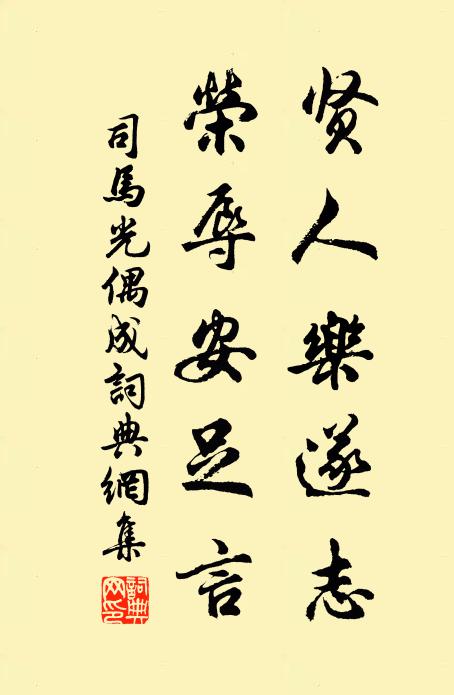 贤人樂遂志
榮辱安足言
司馬光偶成詞典網集
詞典网印